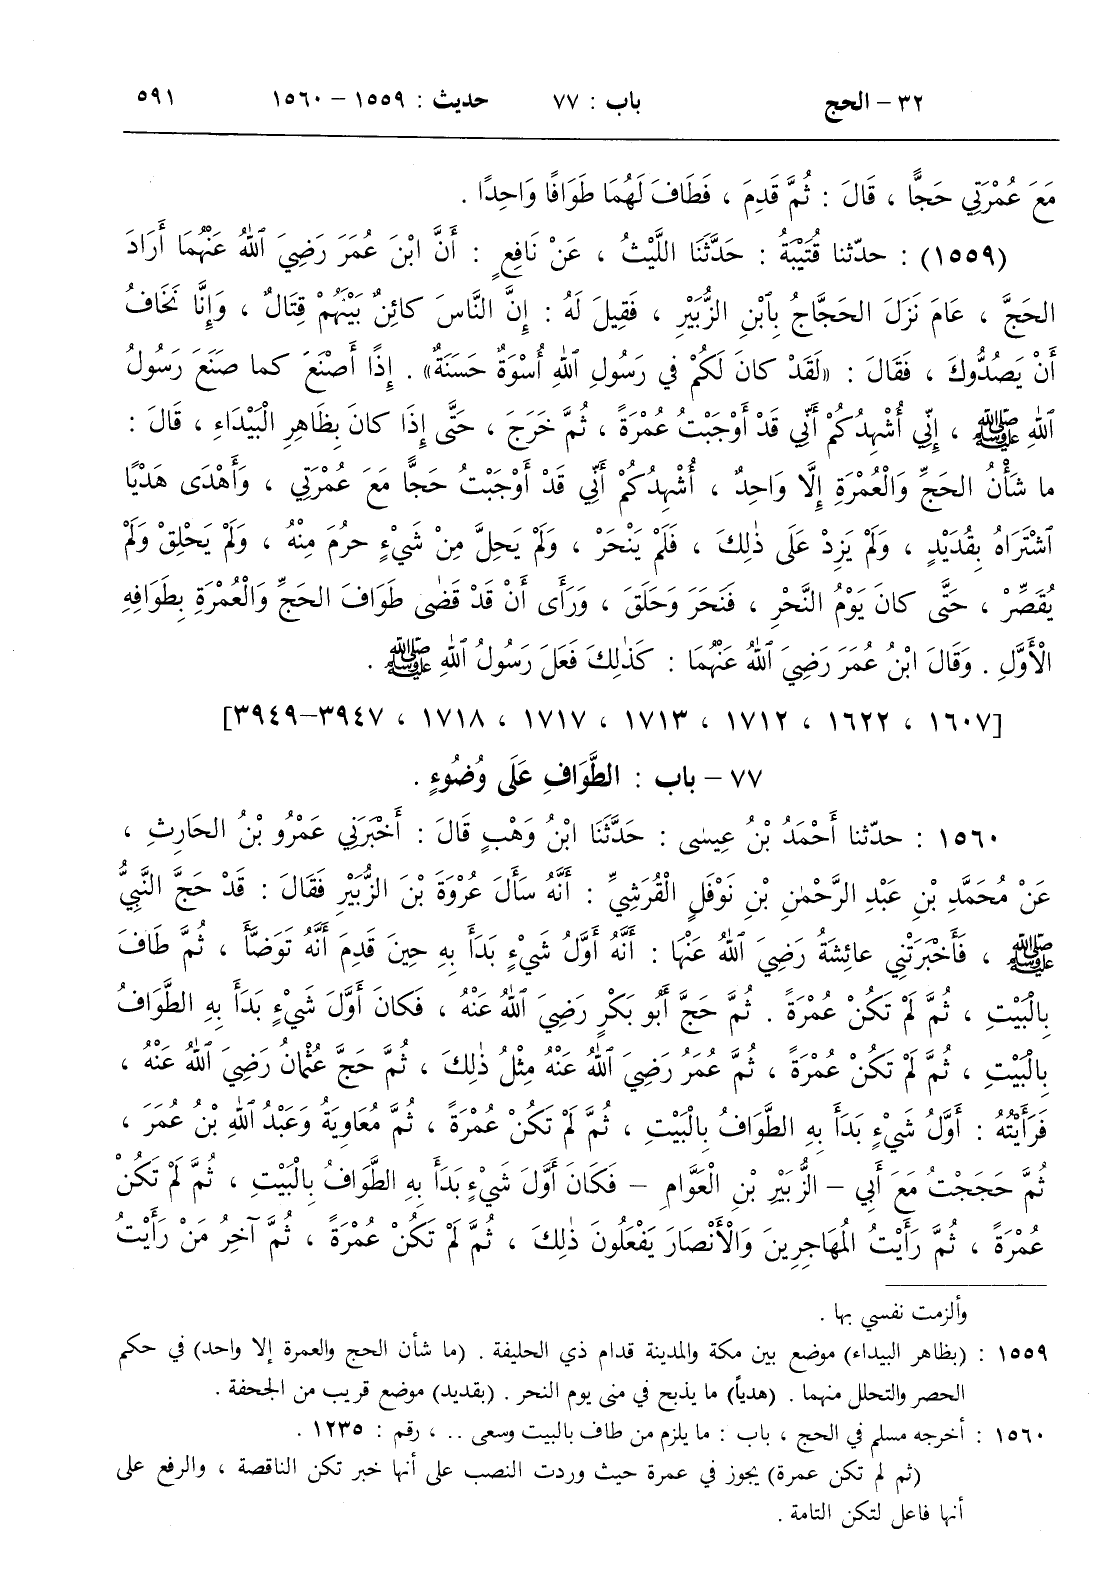 ٣٢ – الحج باب : ٧٧ حديث : ١٥٥٩ – ١٥٦٠ ٥٩١
مَعَ عُمْرَتِي حَجًّا ، قَالَ : ثُمَّ قَدِمَ ، فَطَافَ لَهُمَا طَوَافًا وَاحِدًا .
(١٥٥٩) : حدّثنا قُتَيْبَةُ : حَدَّثَنَا اللَّيْثُ ، عَنْ نَافِعٍ : أَنَّ ابْنَ عُمَرَ رَضِيَ ٱللهُ عَنْهُمَا أَرَادَ
الحَجَّ ، عَامَ نَزَلَ الحَجَّاجُ بِٱبْنِ الزُّبَيْرِ ، فَقِيلَ لَهُ : إِنَّ النَّاسَ كائِنٌ بَيْنَهُمْ قِتَالٌ ، وَإِنَّا نَخَافُ
أَنْ يَصُدُّوكَ ، فَقَالَ : «لَقَدْ كانَ لَكُمْ في رَسُولِ ٱللهِ أُسْوَةٌ حَسَنَةٌ» . إِذًا أَصْنَعَ كما صَنَعَ رَسُولُ
ٱللهِ ﷺ ، إِنِّي أُشْهِدُكُمْ أَنِّي قَدْ أَوْجَبْتُ عُمْرَةً ، ثُمَّ خَرَجَ ، حَتَّى إِذَا كانَ بِظَاهِرِ الْبَيْدَاءِ ، قَالَ :
ما شَأْنُ الحَجِّ وَالْعُمْرَةِ إِلَّا وَاحِدٌ ، أُشْهِدُكُمْ أَنِّي قَدْ أَوْجَبْتُ حَجًّا مَعَ عُمْرَتِي ، وَأَهْدَى هَدْيًا
ٱشْتَرَاهُ بِقُدَيْدٍ ، وَلَمْ يَزِدْ عَلَى ذٰلِكَ ، فَلَمْ يَنْحَرْ ، وَلَمْ يَحِلَّ مِنْ شَيْءٍ حرُمَ مِنْهُ ، وَلَمْ يَحْلِقْ وَلَمْ
يُقَصِّرْ ، حَتَّى كانَ يَوْمُ النَّحْرِ ، فَنَحَرَ وَحَلَقَ ، وَرَأَى أَنْ قَدْ قَضٰى طَوَافَ الحَجِّ وَالْعُمْرَةِ بِطَوَافِهِ
الْأَوَّلِ . وَقَالَ ابْنُ عُمَرَ رَضِيَ ٱللهُ عَنْهُمَا : كَذٰلِكَ فَعَلَ رَسُولُ ٱللهِ ﷺ .
[١٦٠٧ ، ١٦٢٢ ، ١٧١٢ ، ١٧١٣ ، ١٧١٧ ، ١٧١٨ ، ٣٩٤٧–٣٩٤٩]
٧٧ – باب : الطَّوَافِ عَلَى وُضُوءٍ .
١٥٦٠ : حدّثنا أَحْمَدُ بْنُ عِيسٰى : حَدَّثَنَا ابْنُ وَهْبٍ قَالَ : أَخْبَرَنِي عَمْرُو بْنُ الحَارِثِ ،
عَنْ مُحَمَّدِ بْنِ عَبْدِ الرَّحْمٰنِ بْنِ نَوْفَلٍ الْقُرَشِيِّ : أَنَّهُ سَأَلَ عُرْوَةَ بْنَ الزُّبَيْرِ فَقَالَ : قَدْ حَجَّ النَّبِيُّ
ﷺ ، فَأَخْبَرَتْنِي عائِشَةُ رَضِيَ ٱللهُ عَنْهَا : أَنَّهُ أَوَّلُ شَيْءٍ بَدَأَ بِهِ حِينَ قَدِمَ أَنَّهُ تَوَضَّأَ ، ثُمَّ طَافَ
بِالْبَيْتِ ، ثُمَّ لَمْ تَكُنْ عُمْرَةً . ثُمَّ حَجَّ أَبُو بَكْرٍ رَضِيَ ٱللهُ عَنْهُ ، فَكانَ أَوَّلَ شَيْءٍ بَدَأَ بِهِ الطَّوَافُ
بِالْبَيْتِ ، ثُمَّ لَمْ تَكُنْ عُمْرَةً ، ثُمَّ عُمَرُ رَضِيَ ٱللهُ عَنْهُ مِثْلُ ذٰلِكَ ، ثُمَّ حَجَّ عُثْمَانُ رَضِيَ ٱللهُ عَنْهُ ،
فَرَأَيْتُهُ : أَوَّلُ شَيْءٍ بَدَأَ بِهِ الطَّوَافُ بِالْبَيْتِ ، ثُمَّ لَمْ تَكُنْ عُمْرَةً ، ثُمَّ مُعَاوِيَةُ وَعَبْدُ ٱللهِ بْنُ عُمَرَ ،
ثُمَّ حَجَجْتُ مَعَ أَبِي – الزُّبَيْرِ بْنِ الْعَوَّامِ – فَكَانَ أَوَّلَ شَيْءٍ بَدَأَ بِهِ الطَّوَافُ بِالْبَيْتِ ، ثُمَّ لَمْ تَكُنْ
عُمْرَةً ، ثُمَّ رَأَيْتُ المُهَاجِرِينَ وَالْأَنْصَارَ يَفْعَلُونَ ذٰلِكَ ، ثُمَّ لَمْ تَكُنْ عُمْرَةً ، ثُمَّ آخِرُ مَنْ رَأَيْتُ
وألزمت نفسي بها .
١٥٥٩ : (بظاهر البيداء) موضع بين مكة والمدينة قدام ذي الحليفة . (ما شأن الحج والعمرة إلا واحد) في حكم
الحصر والتحلل منهما . (هدياً) ما يذبح في منى يوم النحر . (بقديد) موضع قريب من الجحفة .
١٥٦٠ : أخرجه مسلم في الحج ، باب : ما يلزم من طاف بالبيت وسعى .. ، رقم : ١٢٣٥ .
(ثم لم تكن عمرة) يجوز في عمرة حيث وردت النصب على أنها خبر تكن الناقصة ، والرفع على
أنها فاعل لتكن التامة .